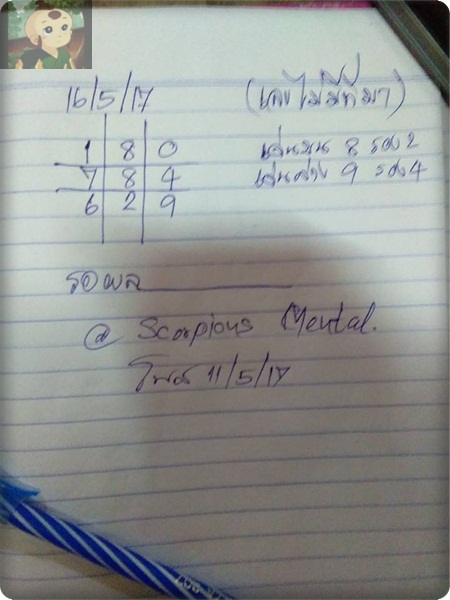 16/5/17 (เลขไม่มีที่มา)
1 8 0 เด่นบน 8 รอง 2
7 8 4 เด่นล่าง 9 รอง 4
6 2 9
รอผล
@ Scorpious Mental.
โพส 11/5/17